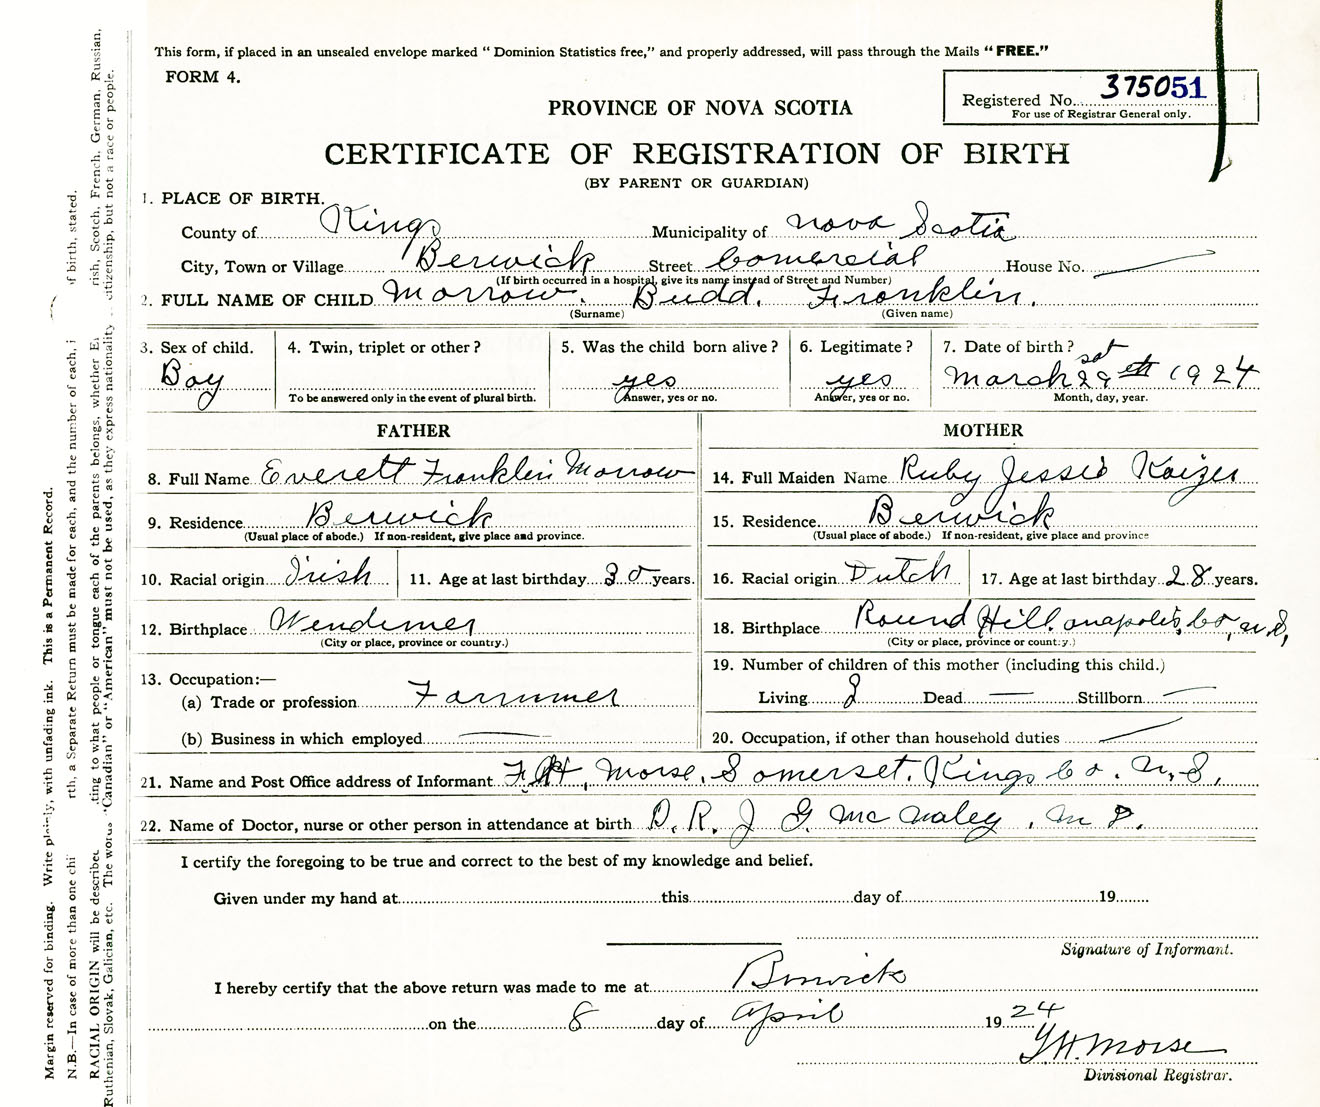 This form, if placed in an unsealed envelope marked " Dominion Statistics free," and properly addressed, will pass through the Mails "FREE."
FORM 4.
Registered No. 375051
For use of Registrar General only.
PROVINCE OF NOVA SCOTIA
CERTIFICATE OF REGISTRATION OF BIRTH
(BY PARENT OR GUARDIAN)
1. PLACE OF BIRTH.
County of Kings Municipality of Nova Scotia
City, Town or Village Berwick Street Comercial House No.
(If birth occurred in a hospital, give its name instead of Street and Number)
2. FULL NAME OF CHILD Morrow. Budd. Franklin.
(Surname) (Given name)
3. Sex of child. 4. Twin, triplet or other? 5. Was the child born alive? 6. Legitimate? 7. Date of birth?
Boy yes yes March 29 sat 1924
To be answered only in the event of plural birth. Answer, yes or no. Answer, yes or no. Month, day, year.
FATHER MOTHER
8. Full Name Everett Franklin Morrow 14. Full Maiden Name Ruby Jessie Kaizer
9. Residence Berwick 15. Residence Berwick
(Usual place of abode.) If non-resident, give place and province. (Usual place of abode.) If non-resident, give place and province
10. Racial origin Irish 11. Age at last birthday 30 years. 16. Racial origin Dutch 17. Age at last birthday 28 years.
12. Birthplace Wendimer 18. Birthplace Round Hill. anapolis, Co, N.S,
(City or place, province or country.) (City or place, province or country.)
13. Occupation:— 19. Number of children of this mother (including this child.)
(a) Trade or profession Farmmer Living 2 Dead — Stillborn —
(b) Business in which employed 20. Occupation, if other than household duties
21. Name and Post Office address of Informant Morse. Somerset. Kings Co. N.S,
22. Name of Doctor, nurse or other person in attendance at birth D.R. J G. McNaley, M D.
I certify the foregoing to be true and correct to the best of my knowledge and belief.
Given under my hand at this day of 19
Signature of Informant.
I hereby certify that the above return was made to me at Berwick
on the 8 day of April 1924
Morse
Divisional Registrar.
Margin reserved for binding. Write plainly, with unfading ink. This is a Permanent Record.
N.B.—In case of more than one chi rth, a Separate Return must be made for each, and the number of each, i of birth, stated.
RACIAL ORIGIN will be described ting to what people or tongue each of the parents belongs, whether E rish, Scotch, French, German, Russian,
Ruthenian, Slovak, Galician, etc. The words "Canadian" or "American" must not be used, as they express nationality citizenship, but not a race or people.